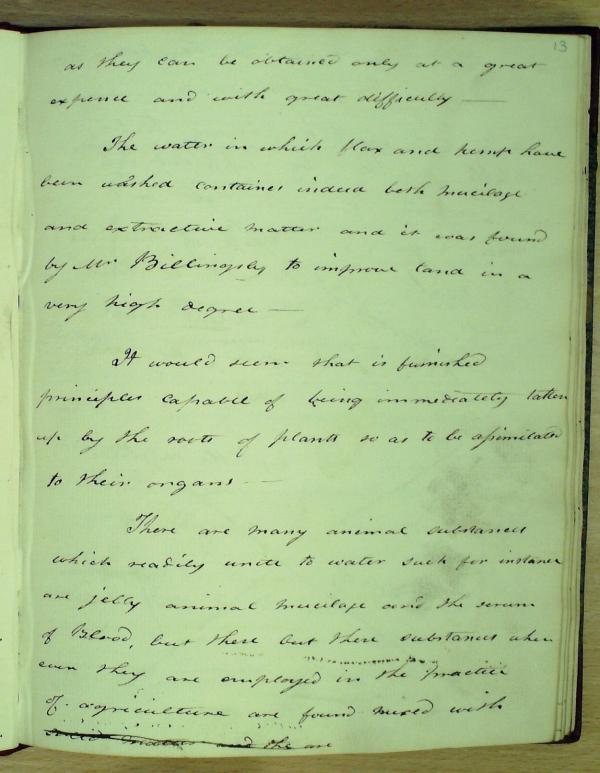 13
as they can be obtained only at a great
expence and with great difficulty —
The water in which flax and hemp have
been washed contains indeed both mucilage
and extractive matter and it was found
by Mr Billingsly to improve land in a
very high degree —
It would seem that is furnished
principles capable of being immediately taken
up by the roots of plants so as to be assimilated
to their organs —
There are many animal substances
which readily unite to water such for instance
are jelly animal mucilage and the serum
of Blood, but these but these substances when
ever they are employed in the practice
of agriculture are found mixed with
matter and the are